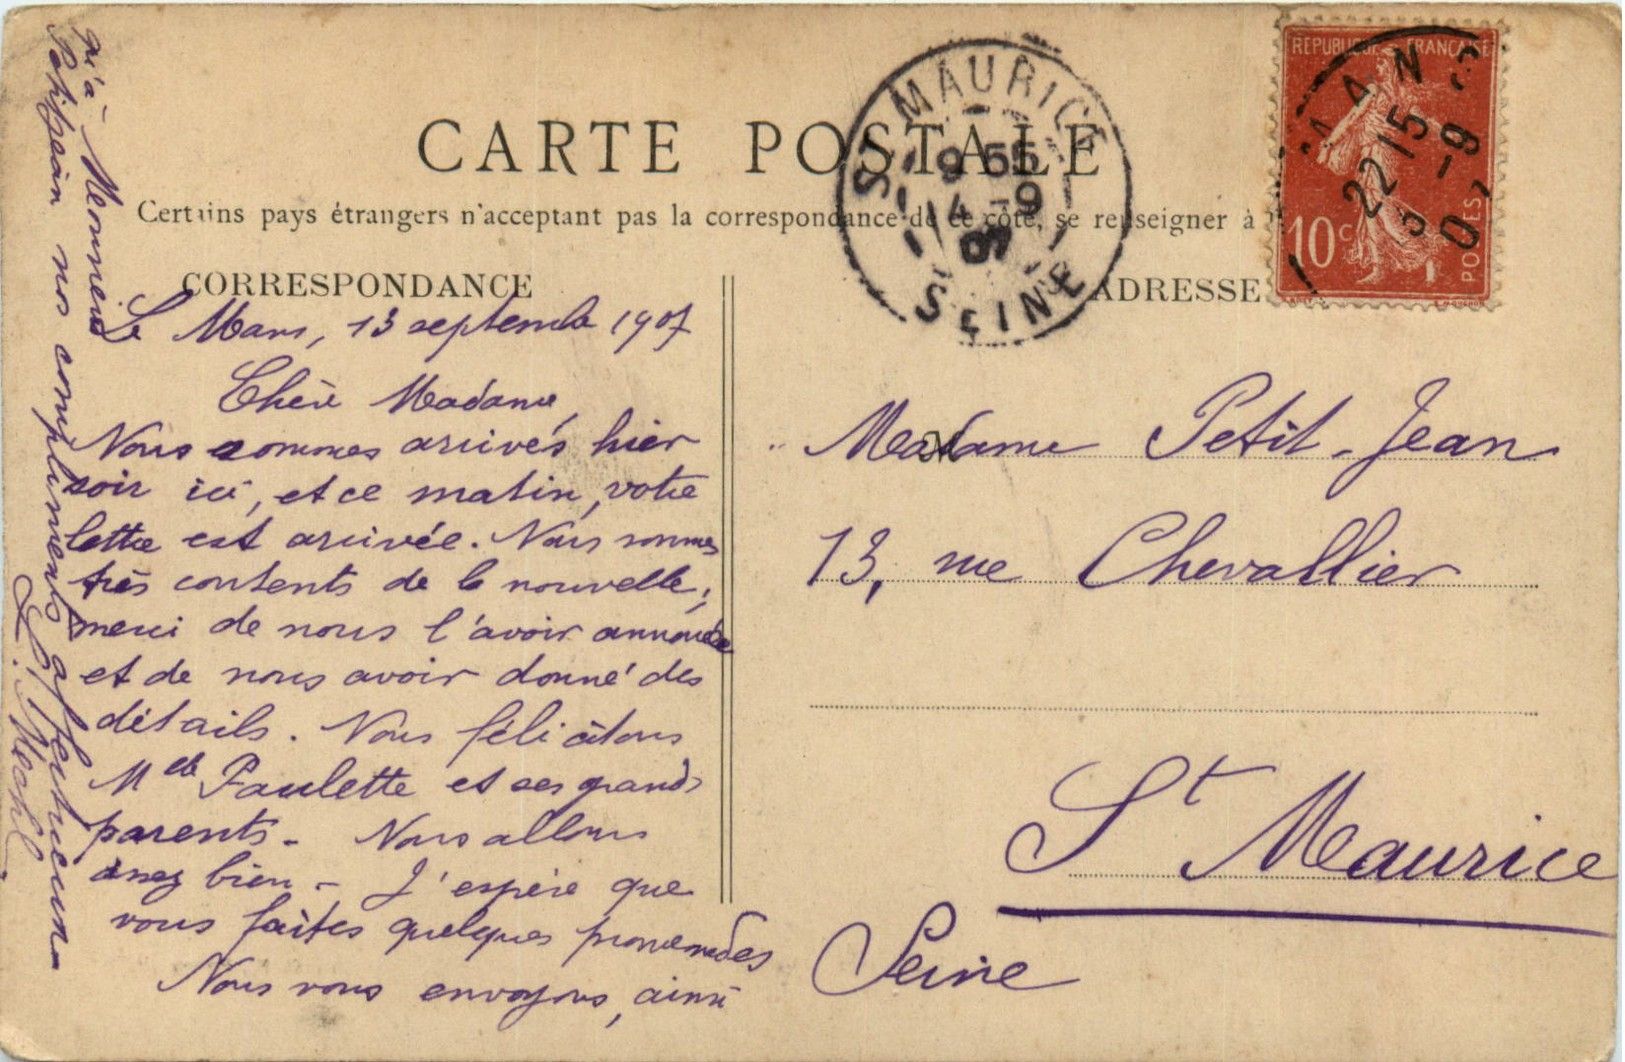 CARTE POSTALE
Certains pays étrangers n'acceptent pas la correspondance de ce côté, se renseigner à
CORRESPONDANCE
ADRESSE
Le Mans, 13 septembre 1907
Chère Madame,
Nous sommes arrivés hier
soir ici, et ce matin, votre
lettre est arrivée. Nous sommes
très contents de la nouvelle;
merci de nous l'avoir annoncée
et de nous avoir donné des
détails. Nous félicitons
Melle Paulette et ses grands
parents - Nous allons
assez bien - J'espère que
vous faites quelques promenades
Nous vous envoyons, ainsi
qu'à Monsieur
Petitjean nos compliments affectueux
Madame Petit-Jean
13, rue Chevallier
St Maurice
Seine
ST MAURICE
9 55
14 -9
07
SEINE
REPUBLIQUE FRANÇAISE
10 c
POSTES
22 15
13 -9
07